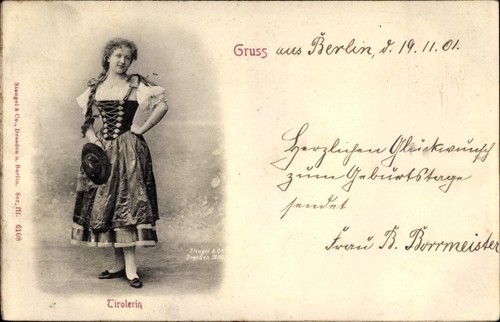 Gruss aus Berlin, d. 19.11.01.
Herzlichen Glückwunsch
zum Geburtstage
sendet
Frau B. Borrmeister
Stengel & Co., Dresden u. Berlin. Ser. III. 6108
Stengel & Co
Dresden
Tirolerin